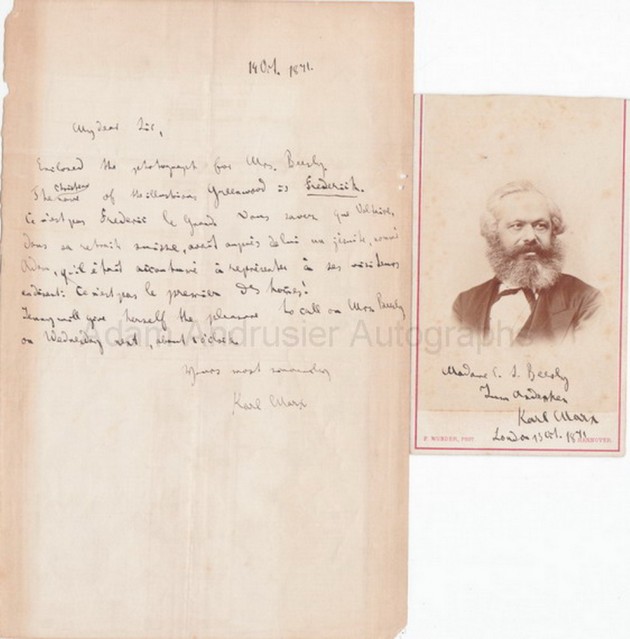 14 Oct. 1871.
My dear Sir,
Enclosed the photograph for Mrs. Beesly
Christian
The name of the illustrious Greenwood is Frederick.
Ce n'est pas Frederic le Grand. Vous savez que Voltaire,
dans sa retraite suisse, avait auprès de lui un jésuite, nommé
Adam, qu'il était accoutumé à représenter à ses visiteurs
en disant: Ce n'est pas le premier des hommes!
Jenny will give herself the pleasure to call on Mrs Beesly
on Wednesday next, about o'clock
Yours most sincerely
Karl Marx
Adam Andrusier Autographs
Madame E. S. Beesly
Zum Andenken
Karl Marx
London 13 Oct. 1871
HANNOVER.